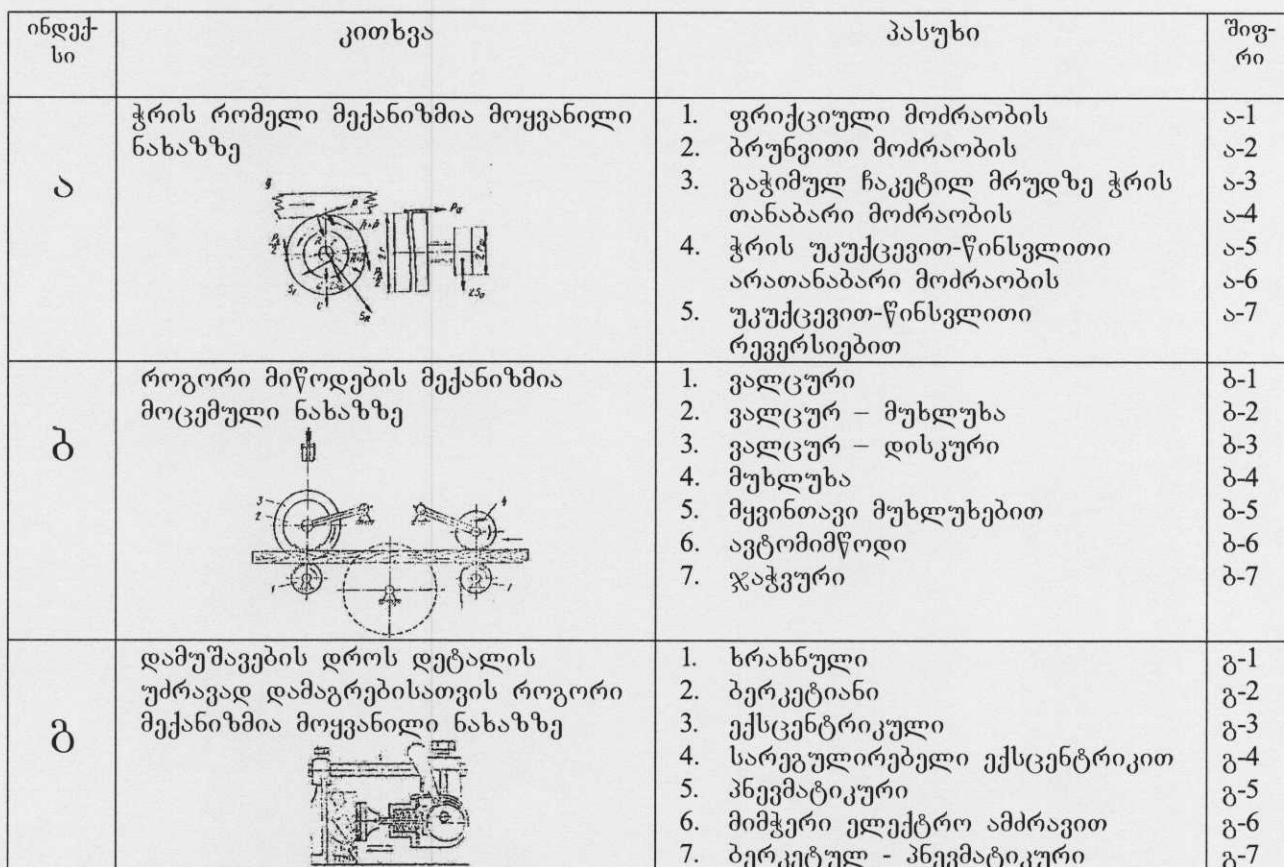 ინდექ-
სი
კითხვა
პასუხი
შიფ-
რი
ა
ჭრის რომელი მექანიზმია მოყვანილი
ნახაზზე
1. ფრიქციული მოძრაობის
2. ბრუნვითი მოძრაობის
3. გაჭიმულ ჩაკეტილ მრუდზე ჭრის
თანაბარი მოძრაობის
4. ჭრის უკუქცევით-წინსვლითი
არათანაბარი მოძრაობის
5. უკუქცევით-წინსვლითი
რევერსიებით
ა-1
ა-2
ა-3
ა-4
ა-5
ა-6
ა-7
ბ
როგორი მიწოდების მექანიზმია
მოცემული ნახაზზე
3
2
4
1
1
1. ვალცური
2. ვალცურ – მუხლუხა
3. ვალცურ – დისკური
4. მუხლუხა
5. მყვინთავი მუხლუხებით
6. ავტომიმწოდი
7. ჯაჭვური
ბ-1
ბ-2
ბ-3
ბ-4
ბ-5
ბ-6
ბ-7
გ
დამუშავების დროს დეტალის
უძრავად დამაგრებისათვის როგორი
მექანიზმია მოყვანილი ნახაზზე
1. ხრახნული
2. ბერკეტიანი
3. ექსცენტრიკული
4. სარეგულირებელი ექსცენტრიკით
5. პნევმატიკური
6. მიმჭერი ელექტრო ამძრავით
7. ბერკეტულ - პნევმატიკური
გ-1
გ-2
გ-3
გ-4
გ-5
გ-6
გ-7